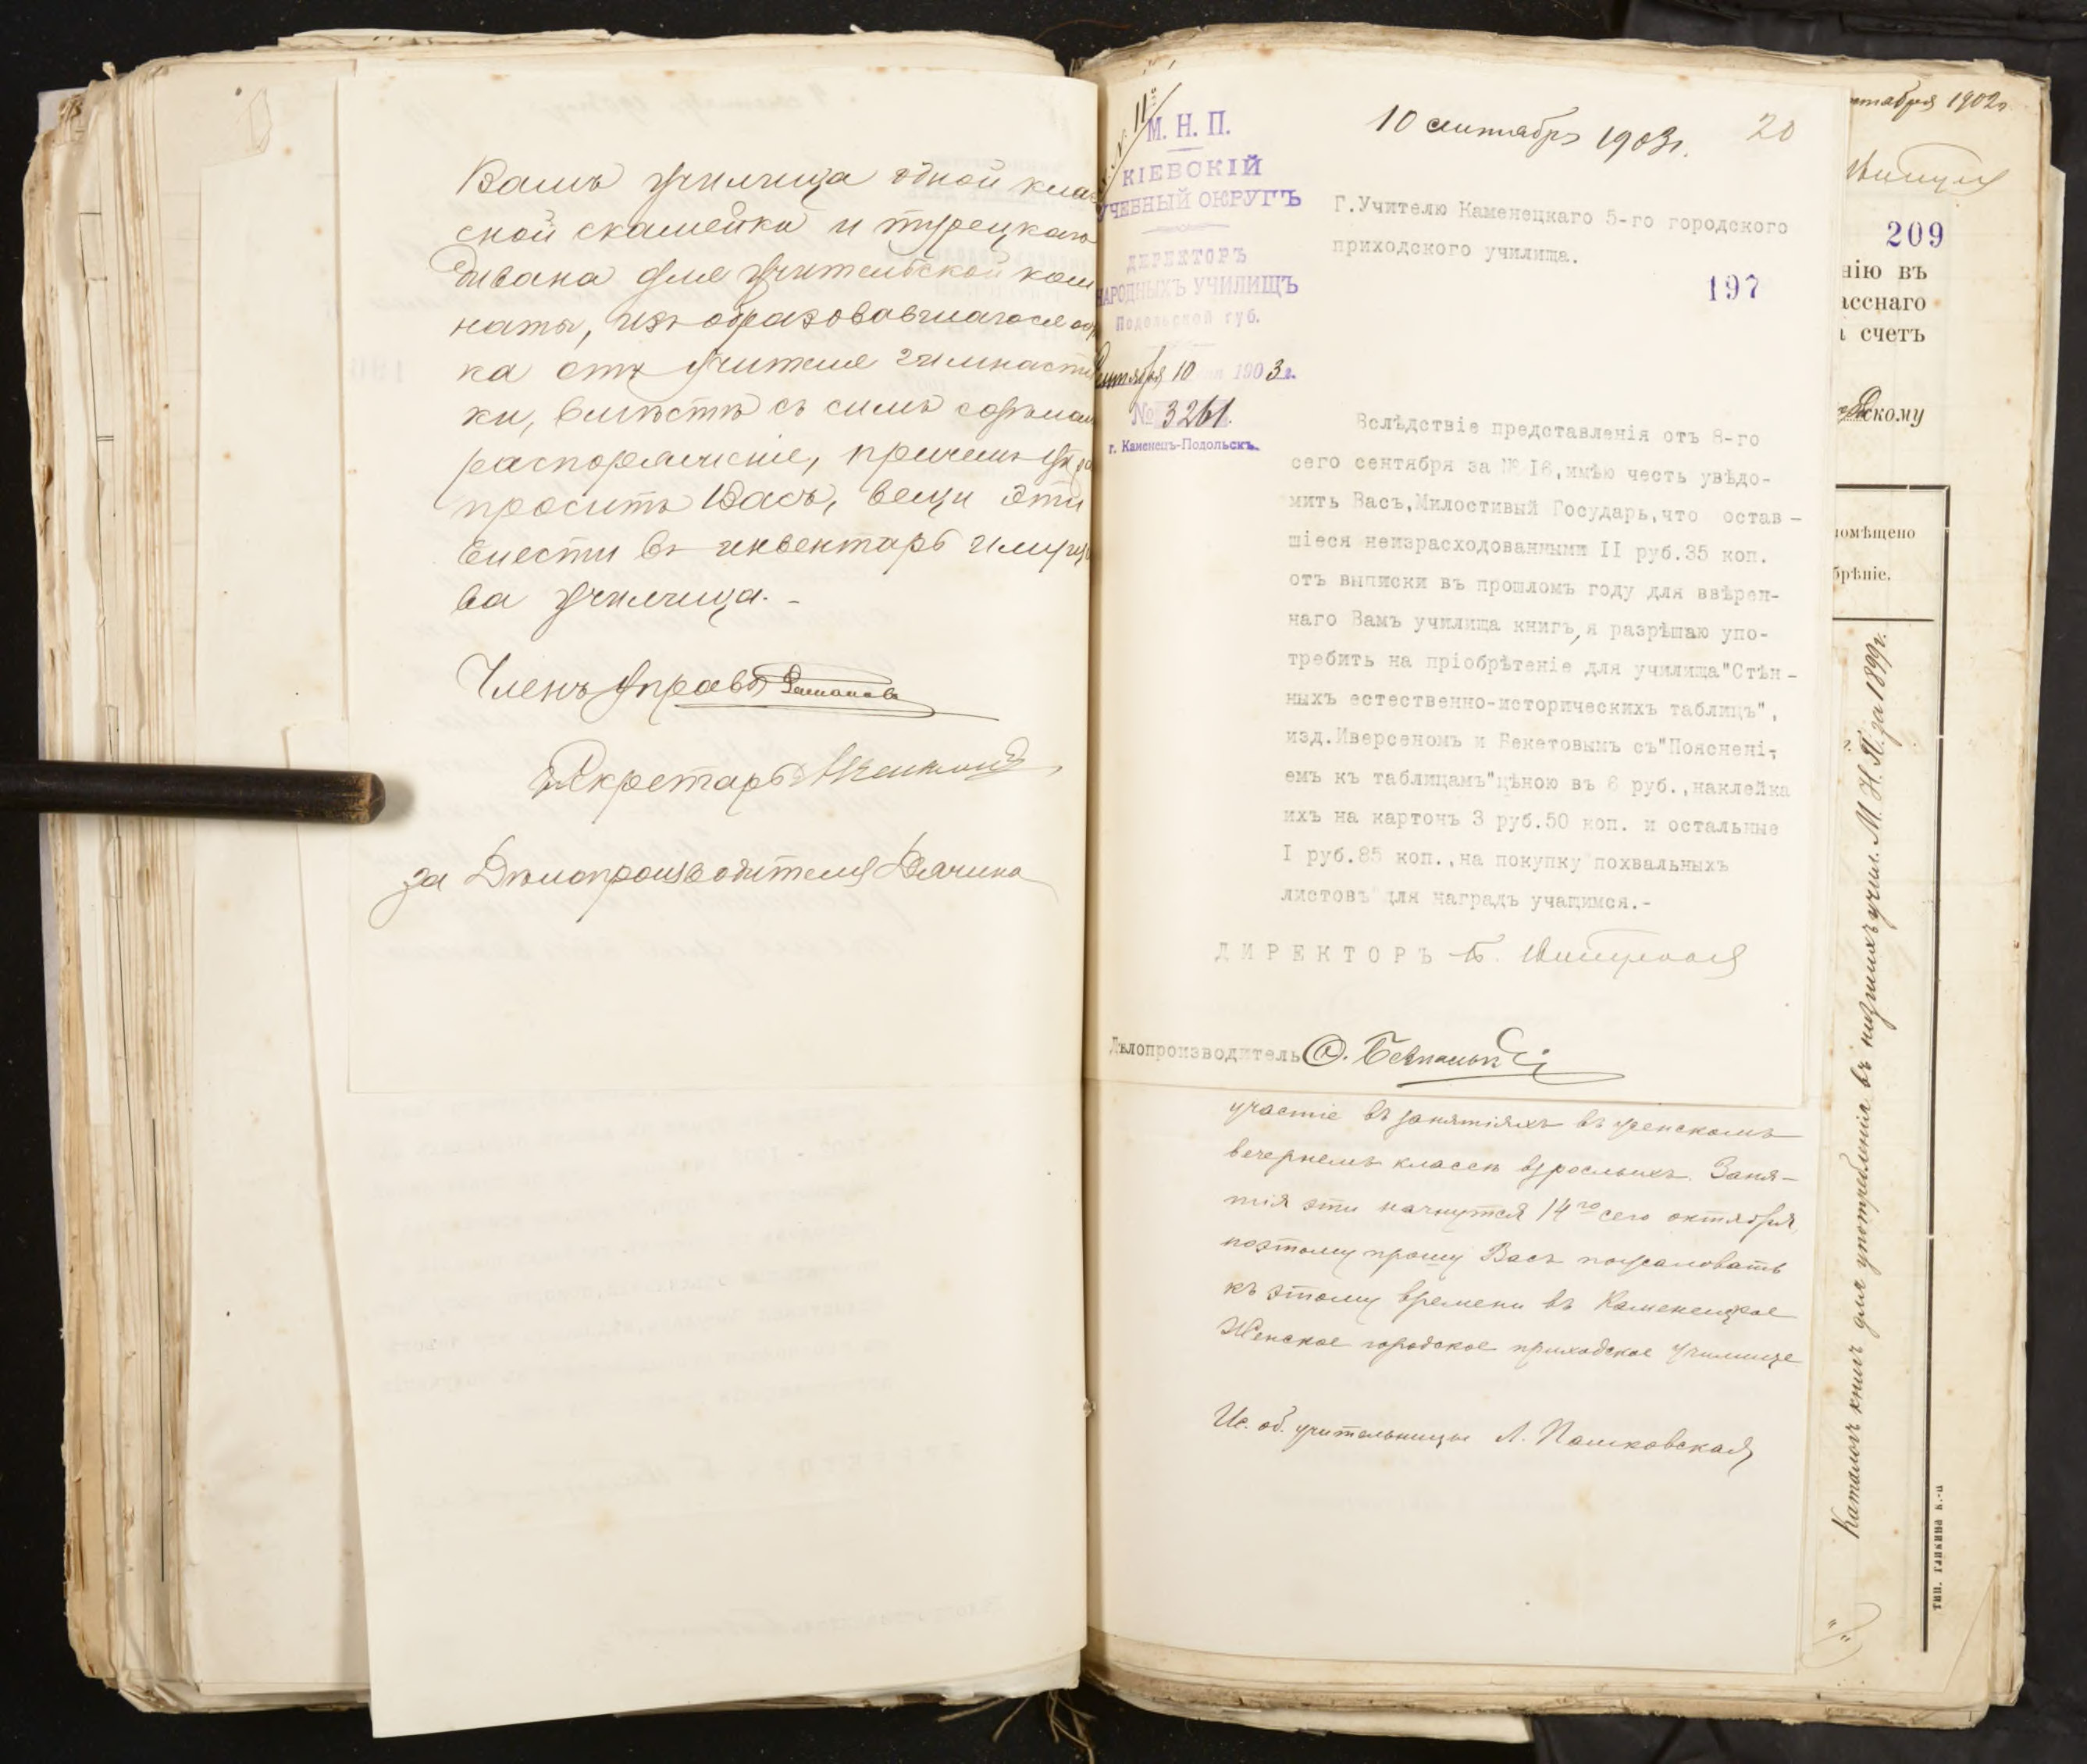 Вамъ училища одной клас
сной скамейки и турецкаго
дивана для учительской ком
наты, изъ образовавшагося
ка отъ учителя гимнасти
ки, вмѣстѣ съ симъ сдѣлан
распоряженіе, причемъ
просить Васъ, вещи эти
внести въ инвентарь имуще
ва училища.-
Членъ Управы
Секретарь
за Дѣлопроизводителя
№ 11
М. Н. П.
КІЕВСКІЙ
УЧЕБНЫЙ ОКРУГЪ
ДИРЕКТОРЪ
НАРОДНЫХЪ УЧИЛИЩЪ
Подольской губ.
Сентября 10 1903 г.
№ 3261.
г. Каменецъ-Подольскъ.
10 сентября 1903г.
20
Г.Учителю Каменецкаго 5-го городского
приходского училища.
197
Вслѣдствіе представленія отъ 8-го
сего сентября за № 16,имѣю честь увѣдо-
мить Васъ,Милостивый Государь,что остав-
шіеся неизрасходованными II руб.35 коп.
отъ выписки въ прошломъ году для ввѣрен-
наго Вамъ училища книгъ, я разрѣшаю упо-
требить на пріобрѣтеніе для училища"Стѣн-
ныхъ естественно-историческихъ таблицъ",
изд.Иверсеномъ и Бекетовымъ съ"Поясненi-
емъ къ таблицамъ"цѣною въ 6 руб.,наклейка
ихъ на картонъ 3 руб.50 коп. и остальные
I руб.85 коп.,на покупку похвальныхъ
листовъ для наградъ учащимся.-
ДИРЕКТОРЪ
Дѣлопроизводитель
участіе въ занятіяхъ въ женскомъ
вечернемъ классѣ взрослыхъ. Заня-
тія эти начнутся 14го сего октября,
поэтому прошу Васъ пожаловать
къ этому времени въ Каменецкое
Женское городское приходское училище
Ис. об. учительницы Л. Пашковская
ктября 1902г.
209
нію въ
асснаго
счетъ
скому
помѣщено
брѣніе.
Каталогъ книгъ для употребленія въ низшихъ учил. М. Н. П. за 1899г.
тип. Гликина К.-П